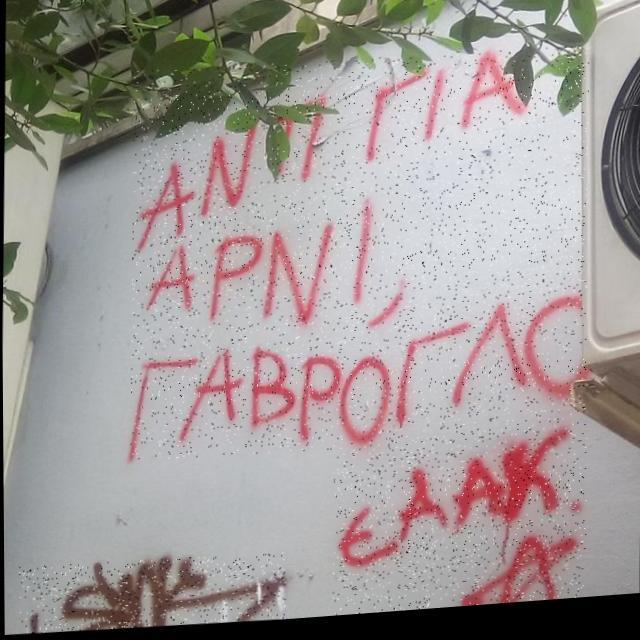 ΑΝΤΙ ΓΙΑ
ΑΡΝΙ,
ΓΑΒΡΟΓΛΟ
ΕΑΑΚ.